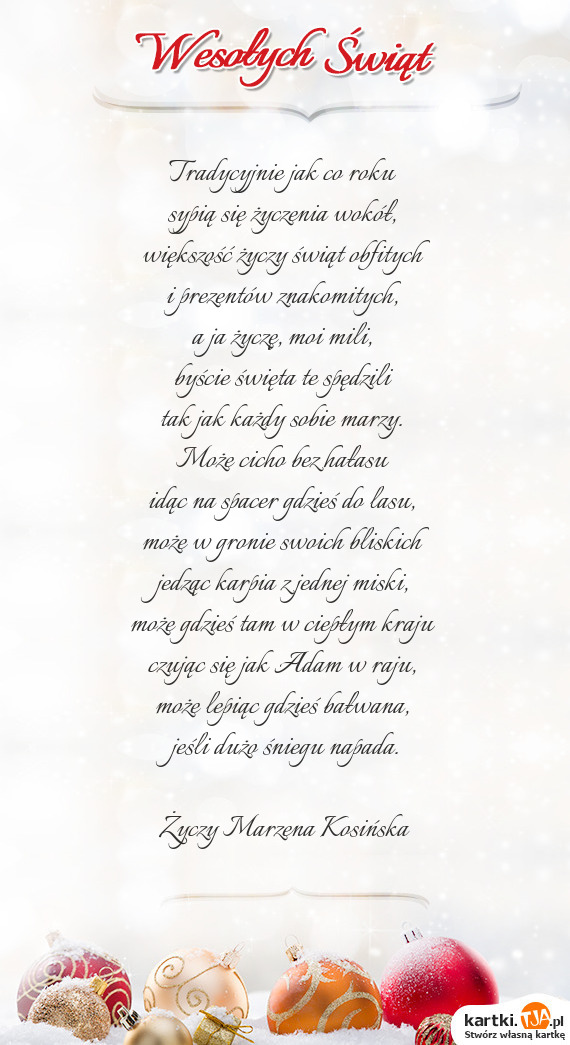 Wesołych Świąt
Tradycyjnie jak co roku
sypią się życzenia wokół,
większość życzy świąt obfitych
i prezentów znakomitych,
a ja życzę, moi mili,
byście święta te spędzili
tak jak każdy sobie marzy.
Może cicho bez hałasu
idąc na spacer gdzieś do lasu,
może w gronie swoich bliskich
jedząc karpia z jednej miski,
może gdzieś tam w ciepłym kraju
czując się jak Adam w raju,
może lepiąc gdzieś bałwana,
jeśli dużo śniegu napada.
Życzy Marzena Kosińska
kartki.TJA.pl
Stwórz własną kartkę